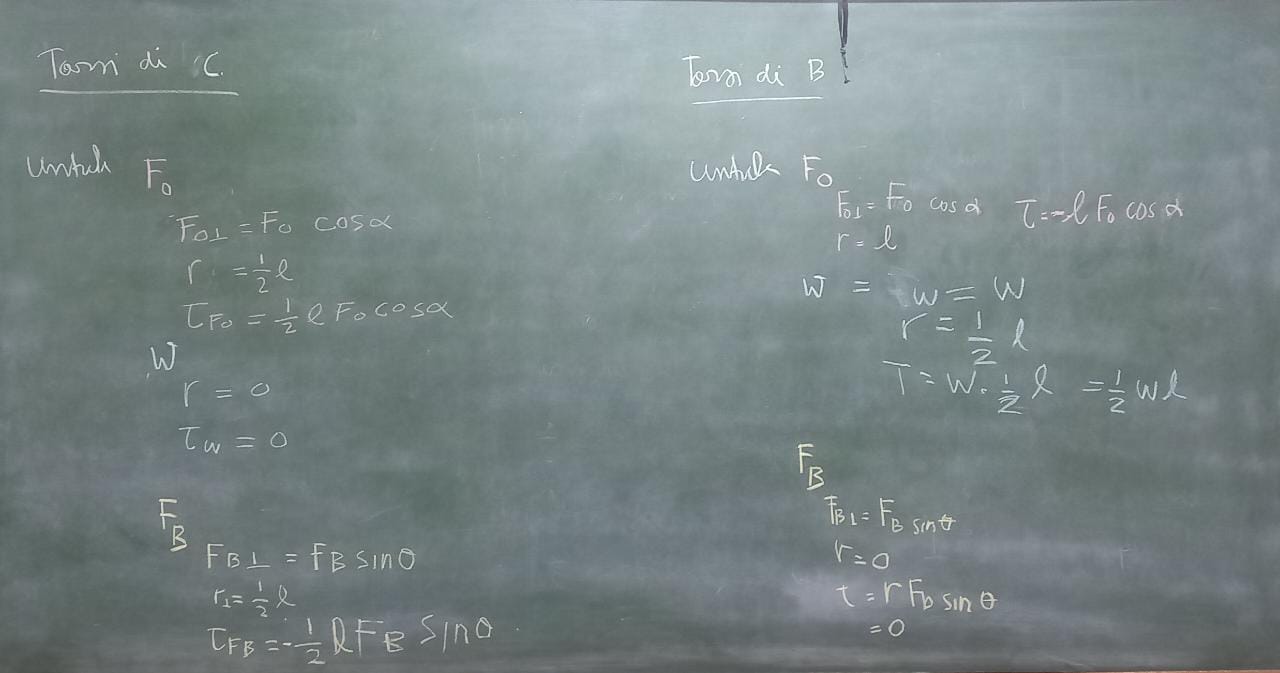 Torsi di C.
untuk F₀
F₀⊥ = F₀ cos α
r = 1/2 l
τF₀ = 1/2 l F₀ cos α
W
r = 0
τw = 0
F_B
F_B⊥ = F_B sin θ
r⊥ = 1/2 l
τF_B = -1/2 l F_B sin θ
Torsi di B
untuk F₀
F₀⊥ = F₀ cos α τ = -l F₀ cos α
r = l
W = w = W
r = 1/2 l
τ = W . 1/2 l = 1/2 W l
F_B
F_B⊥ = F_B sin θ
r = 0
τ = r F_b sin θ
= 0